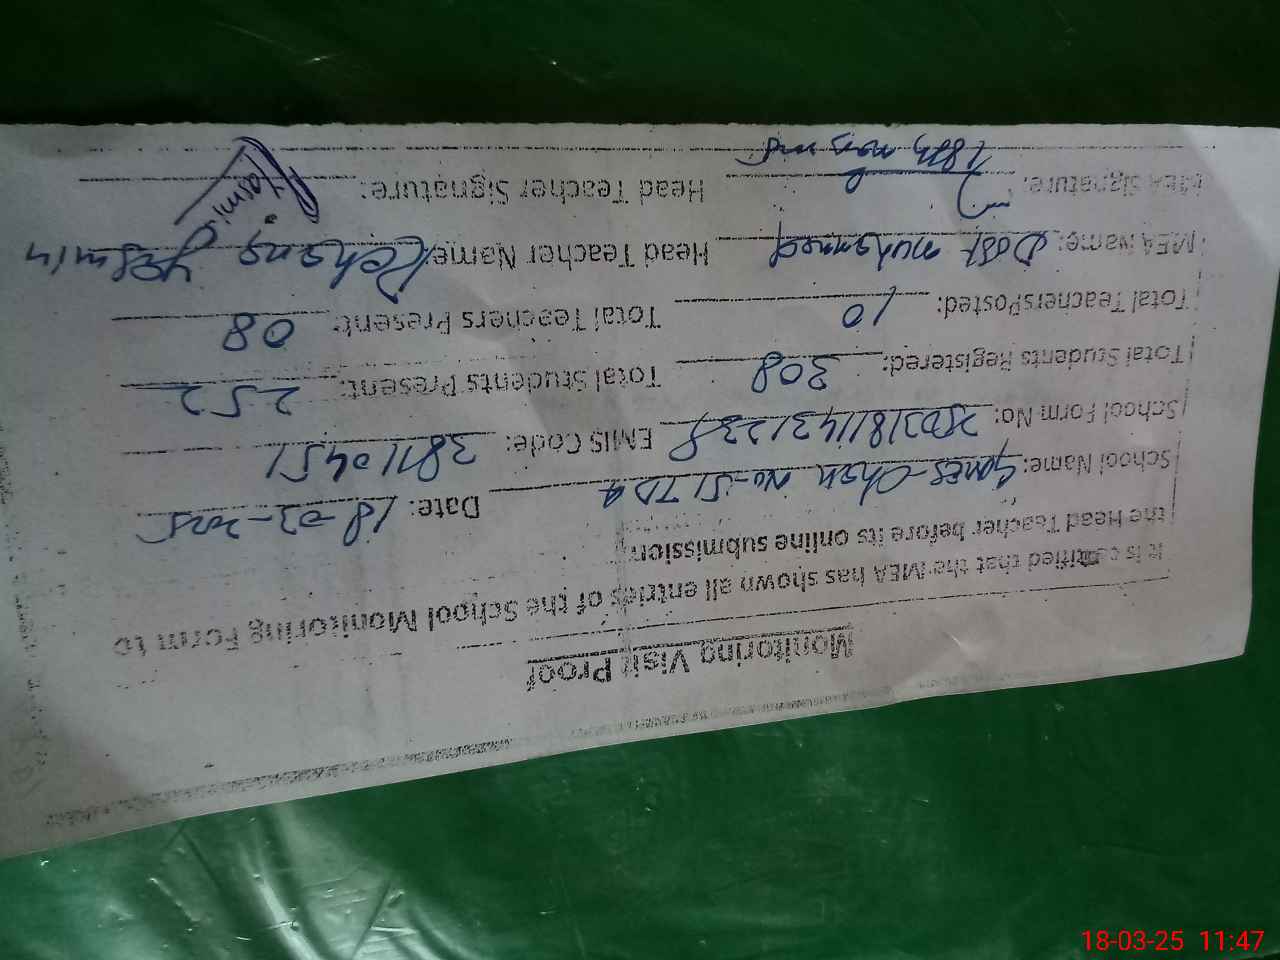 Monitoring Visit Proof
It is certified that the MEA has shown all entries of the School Monitoring Form to
the Head Teacher before its online submission
School Name: Chak No-51 TDA Date: 18-03-2025
School Form No: EMIS Code: 38110451
Total Students Registered: 308 Total Students Present: 252
Total Teachers Posted: 10 Total Teachers Present: 08
MEA Name: Dost Muhammad Head Teacher Name: Rehana Yasmin
MEA Signature: Head Teacher Signature: Yasmin
18-03-25 11:47